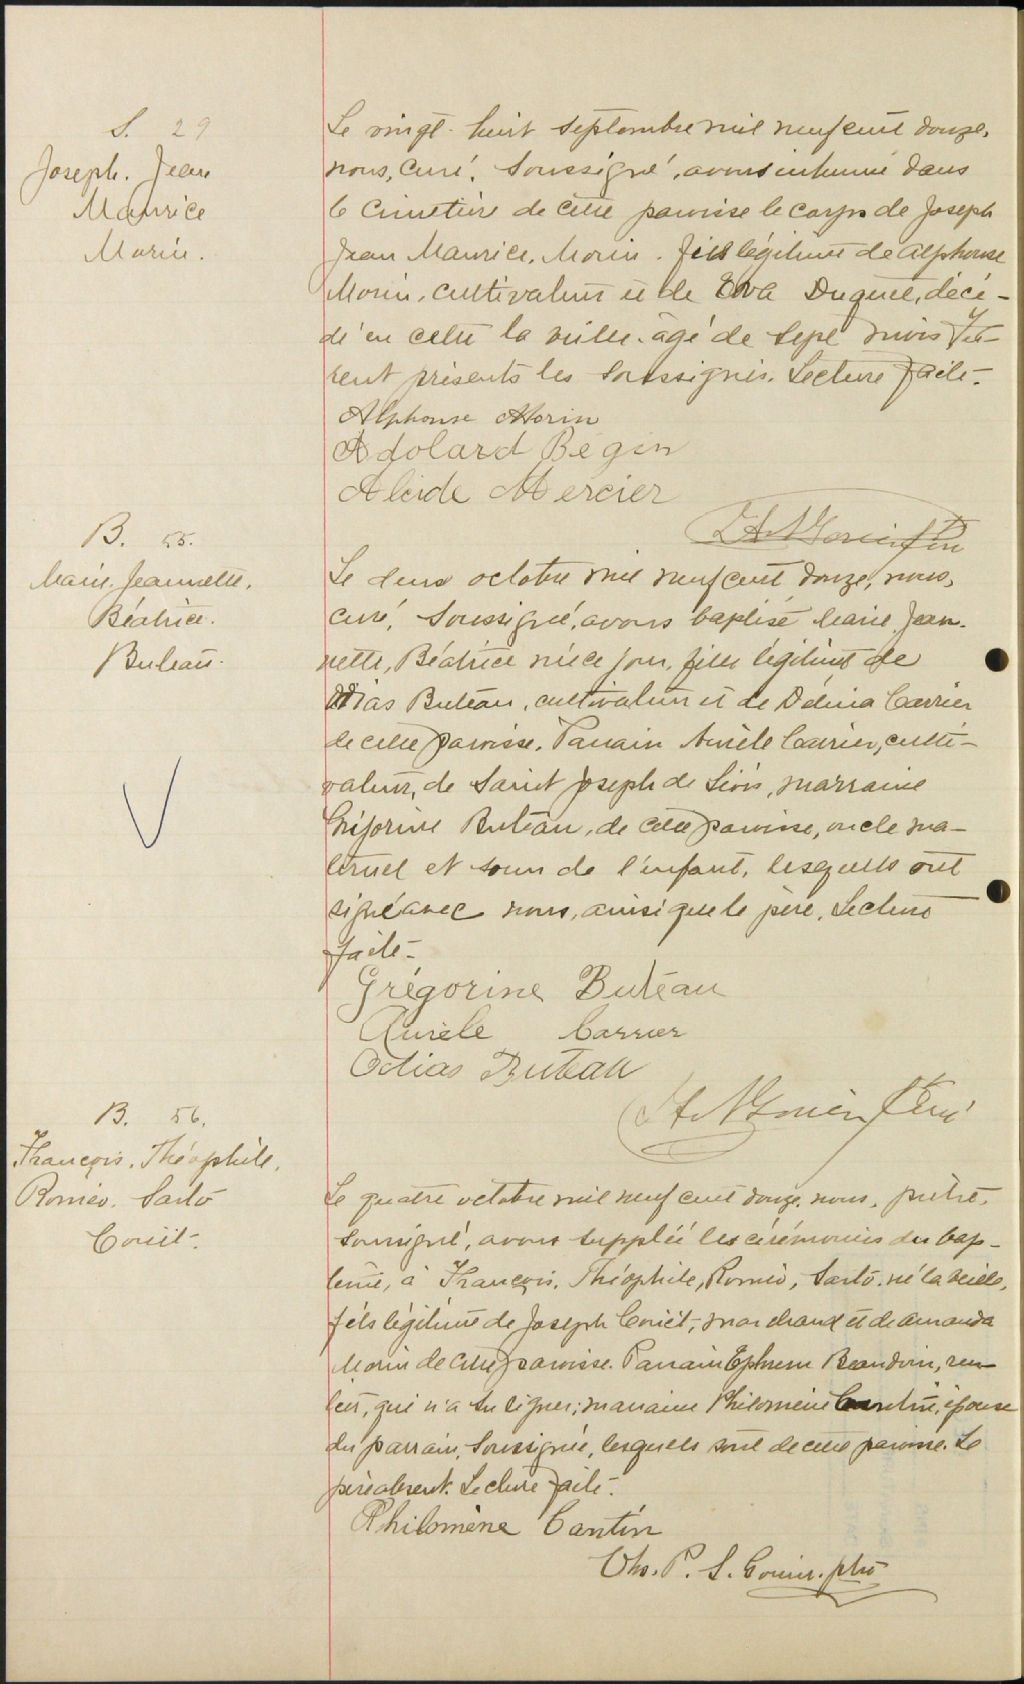 S. 29
Joseph. Jean
Maurice
Morin.
Le vingt-huit septembre mil neuf cent douze,
nous, curé, soussigné, avons inhumé dans
le cimetière de cette paroisse le corps de Joseph
Jean Maurice, Morin. fils légitime de Alphonse
Morin, cultivateur et de Eva Duquet, décé-
dé en cette la veille, âgé de sept mois. Fu-
rent présents les soussignés. Lecture faite.-
Alphonse Morin
Adolard Bégin
Alcide Mercier
Morin Ptre
B. 55.
Marie, Jeannette,
Béatrice.
Buteau.
Le deux octobre mil neuf cent douze, nous,
curé, soussigné, avons baptisé Marie, Jean-
nette, Béatrice née ce jour, fille légitime de
Odias Buteau, cultivateur et de Délina Carrier
de cette paroisse. Parrain Aurèle Carrier, culti-
vateur, de Saint Joseph de Lévis, marraine
Grégorine Buteau, de cette paroisse, oncle ma-
ternel et soeur de l'enfant, lesquels ont
signé avec nous, ainsi que le père. Lecture
faite-
Grégorine Buteau
Aurèle Carrier
Odias Buteau
Morin Ptre Curé
B. 56.
François, Théophile,
Roméo. Sarto
Couët.
Le quatre octobre mil neuf cent douze, nous, prêtre,
soussigné, avons suppléé les cérémonies du bap-
tême, à François, Théophile, Roméo, Sarto, né la veille,
fils légitime de Joseph Couët, marchand et de Amanda
Morin de cette paroisse. Parrain Ephrem Beaudoin, ren-
tier, qui n'a su signer; marraine Philomène Cantin, épouse
du parrain, soussignée, lesquels sont de cette paroisse. Le
père absent. Lecture faite.
Philomène Cantin
P. S. ptre